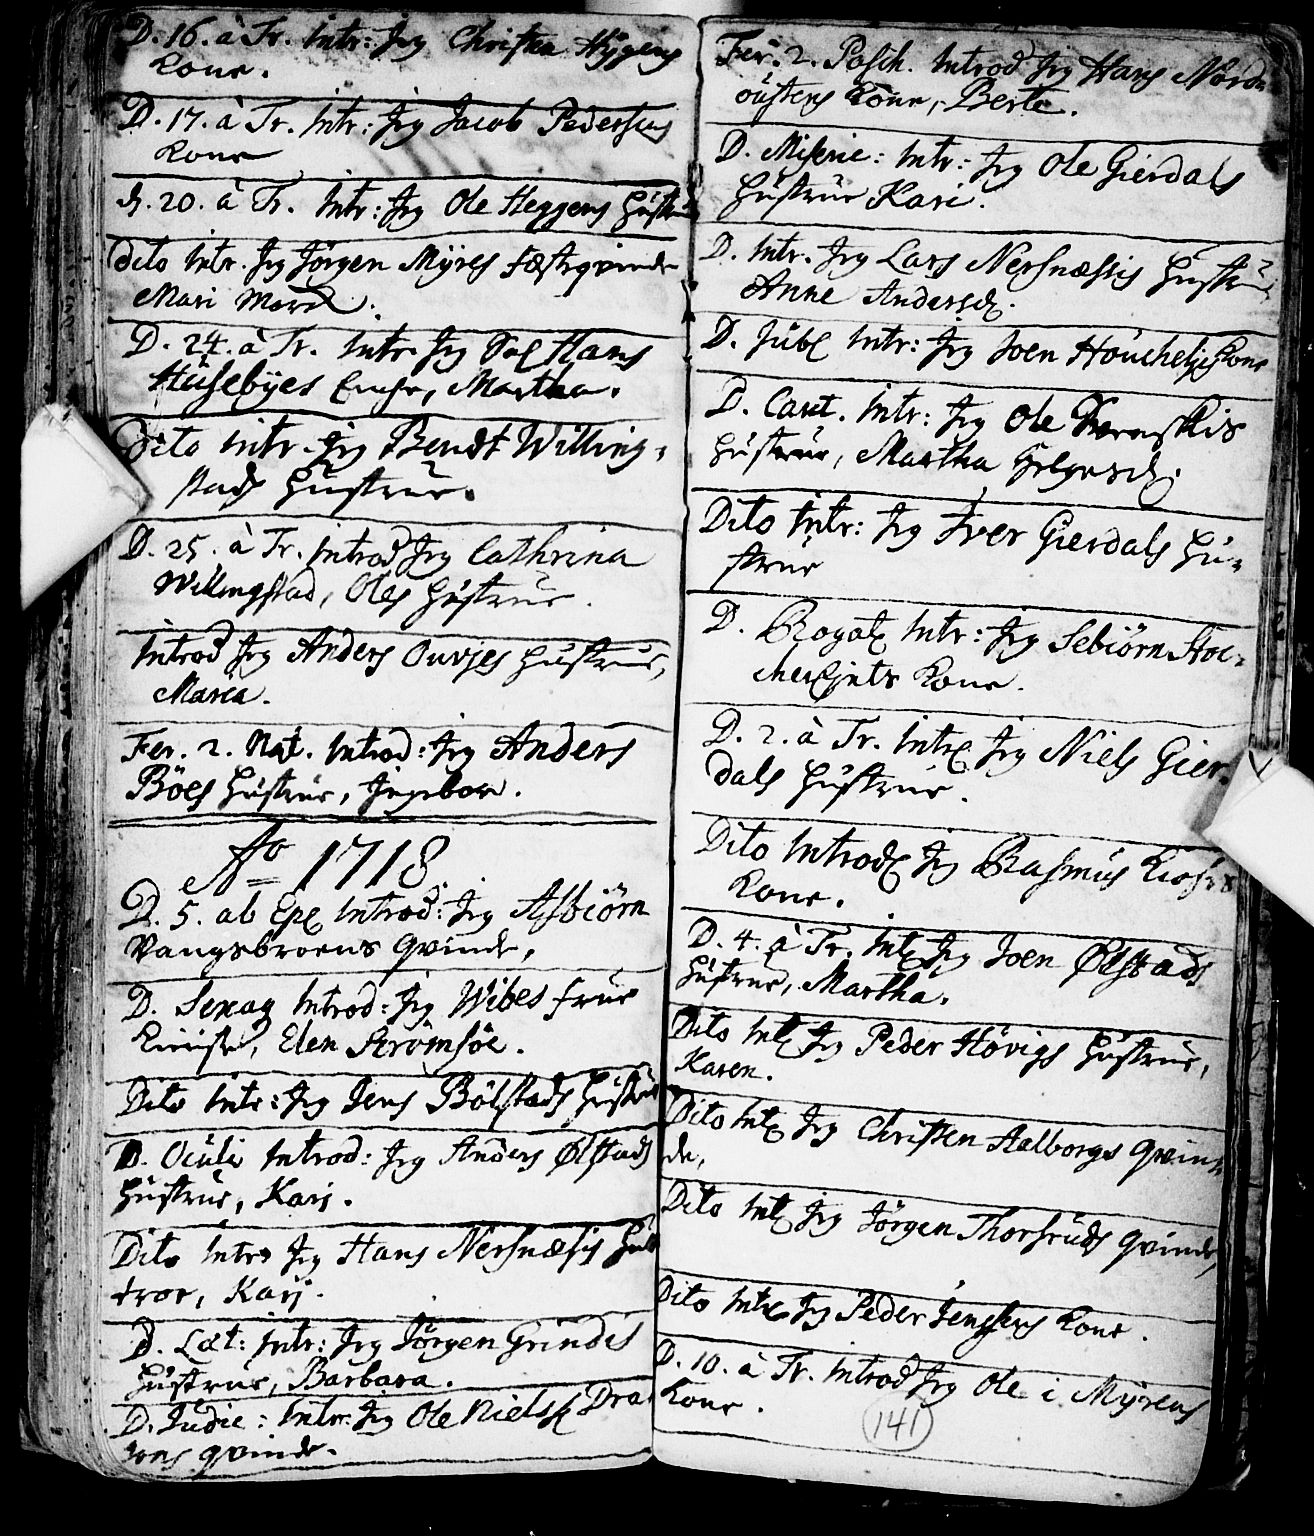 D. 16. à Tr. Intr: Jeg Christen Hÿgens
Kone.
D. 17. à Tr. Intr: Jeg Jacob Pedersens
Kone
D. 20. à Tr. Intr: Jeg Ole Heggens Hüstrüe
Dito Intr. Jeg Jörgen Mÿres Fæstqvinde
Mari
D. 24. à Tr. Intr. Jeg Sal Hans
Hüsebÿes Martha.
Dito Intr. Jeg Bendt Willing-
stads Hüstrüe.
D. 25. à Tr. Introd Jeg Cathrina
Willingstad, Oles Hüstrüe.
Introd Jeg Anders Ouvjes Hüstrüe,
Maria.
Fer. 2. Nat. Introd: Jeg Anders
Böes Hüstrüe, Ingebor.
Ao 1718
D. 5. ab Ep Introd: Jeg Asbiörn
Vangsbroens Qvinde,
D. Sexag Introd: Jeg Wibes Früe
Elen Strömsöe.
Dito Intr: Jeg Jens Bölstads Hüstrüe
D. Oculi Introd: Jeg Anders Ølstads
Hüstrüe, Karj.
Dito Intr: Jeg Hans Nersnæsis Hüs
troe, Karj.
D. Læt: Intr: Jeg Jörgen Grindes
Hüstrüe, Barbara.
D. Judic: Intr: Jeg Ole Niels Dra-
qvinde.
Fer. 2. Pasch. Introd Jeg Hans Nord-
oüstens Kone, Berte.
D. Miseric: Intr: Jeg Ole Gierdals
Hüstrüe Kari.
D. Intr. Jeg Lars Nersnæssis Hüstrüe
Anne Andersd.
D. Jübl Intr: Jeg Joen Kone
D. Cant. Intr: Jeg Ole
Hüstrüe, Martha Helgesd.
Dito Intr: Jeg Iver Gierdals Hü-
strüe
D. Rogat Intr: Jeg Sebiörn
Kone.
D. 2. à Tr. Intr Jeg Niels Gier-
dals Hüstrüe.
Dito Introd Jeg Rasmus
Kone.
D. 4. à Tr. Int Jeg Joen Ølstads
Hüstrüe, Martha.
Dito Int Jeg Peder Hövigs Hüstrüe,
Karen.
Dito Int Jeg Christen Aalborgs Qvin-
de,
Dito Int Jeg Jörgen Thorsrüds Qvinde,
Dito Intr Jeg Peder Jensens Kone.
D. 10. à Tr. Introd Jeg Ole i Mÿrens
Kone.
141